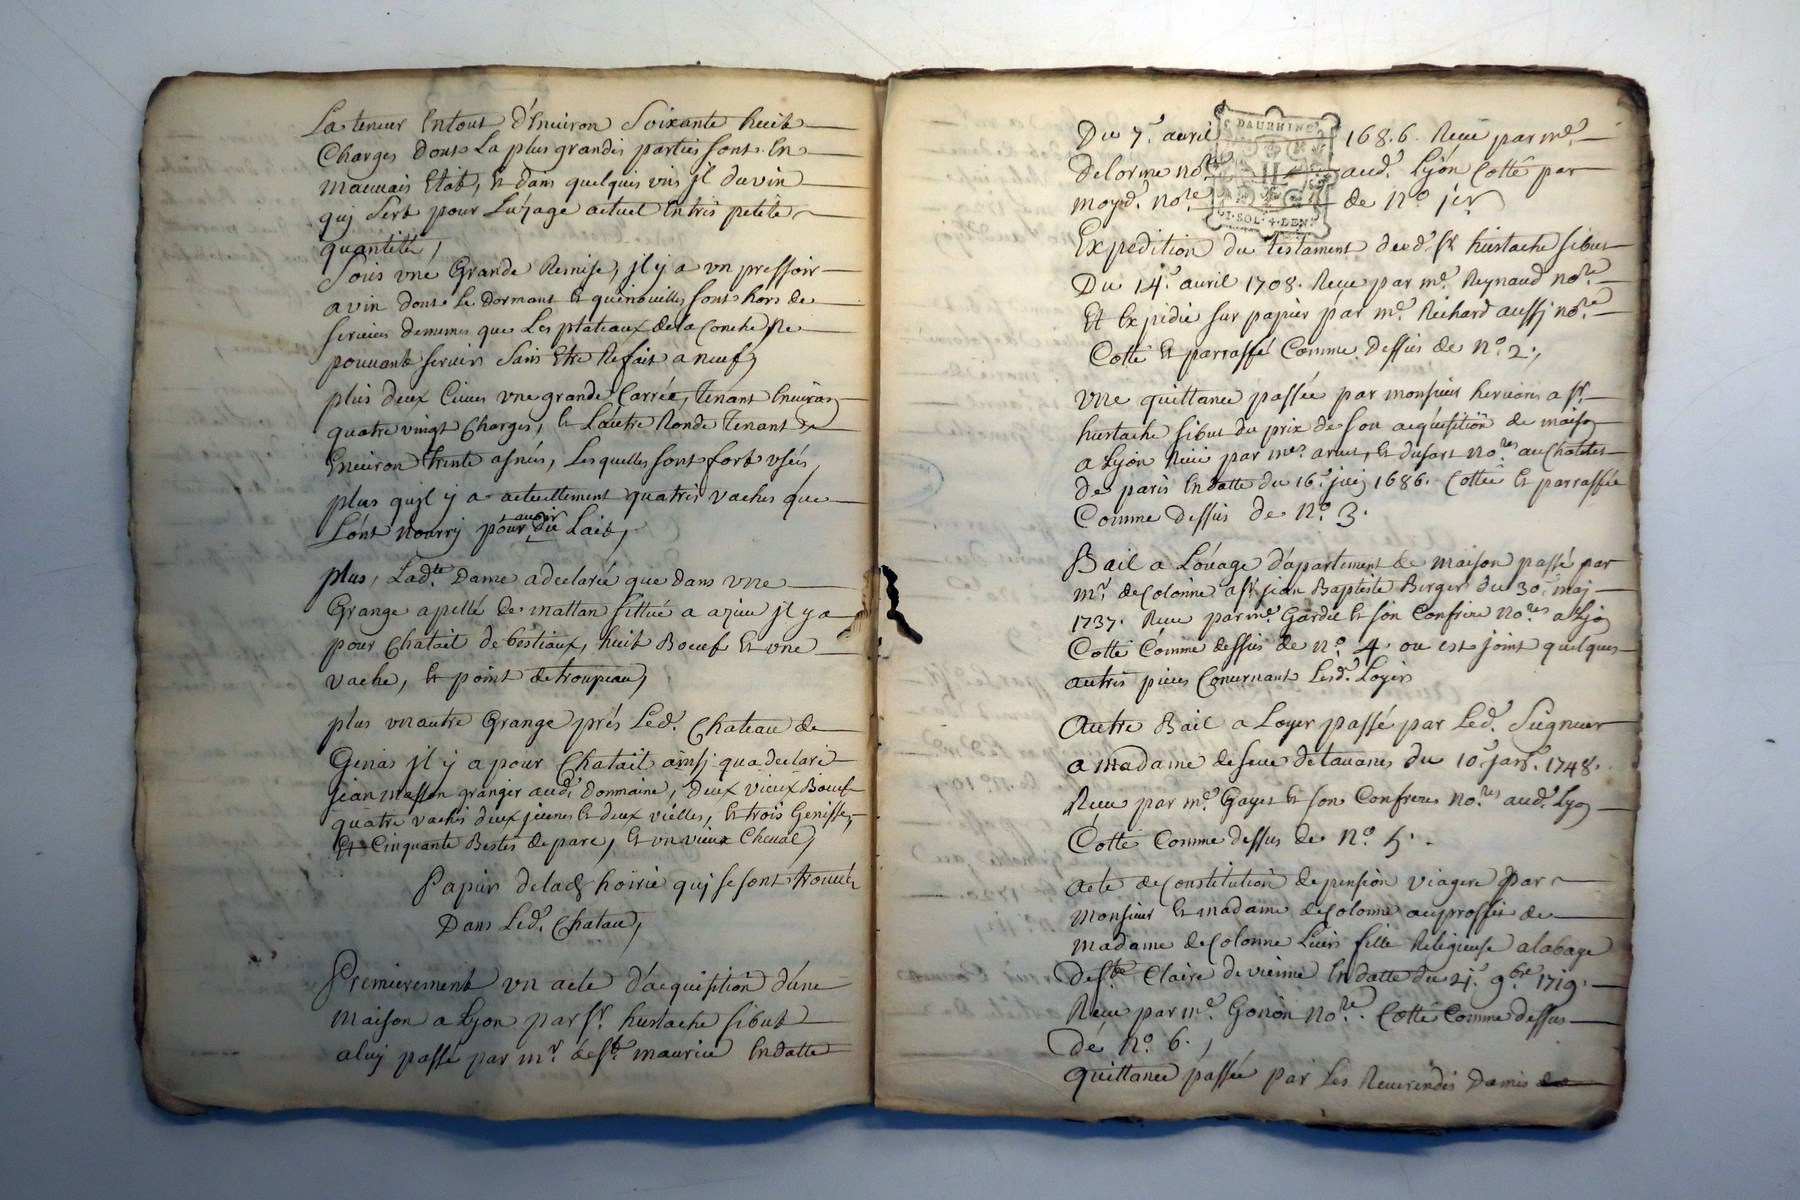 La teneur Entout d'Enuiron Soixante huit
Charges dont La plus grandes parties sont En
mauuais Etat, Et dans quelques vns jl du vin
quj sert pour Lu'zage actuel Entrés petite
quantitté,
Sous vne Grande Remise, jl y a vn pressoir
a vin dont Le dormant Et quenouilles sont hors de
seruices demêmes que Les plateaux de la Conche Ne
pouuant seruirs sans Etre Refait a neuf,
plus deux Cuues vne grande Carrée, Tenant Enuiron
quatre vingt Charges, Et L'autre Ronde Tenant
Enuiron trente asnées, Lesquelles sont fort vsées,
plus qu'jl y a actuellement quatres vaches que
L'ont nourrj pour auoir du Lait,
plus, Lad.te Dame a declarée que dans vne
Grange apellé de mattan sittué a azieu jl y a
pour Chatait de bestiaux, huit Boeuf Et vne
vache, Et point de troupeau,
plus vn autre Grange prés Led. Chateau de
Genas jl y a pour Chatait ainsj qua declaré
jean masson granger aud. Dommaine, Deux vieux Boeuf
quatre vaches deux jeunes Et deux viélles, Et trois Genisse,
Et Cinquante Bestes de parc, Et vn vieux Cheual,
Papiers de lad. hoirie quj se sont trouués
Dans Led. Chatau,
Premierement vn acte D'acquisition D'une
maison a Lyon par Sr. hustache Sibut
a luy passé par mr. de St. maurice En datte
Du 7.e auril 1686. Receu par me.
Delorme nore. aud. Lyon Cotté par
moyd. nore. de No. jer
DAUPHINE
I. SOL. 4. DEN.
Expedition du testament dud. Sr. hustache Sibut
Du 14.e auril 1708. Receu par me. Reynaud nore.
Et Expedié sur papier par me. Richard aussj nore.
Cotté Et parraffé Comme dessus de No. 2.,
Vne quittance passée par monsieur heruiers a Sr.
hustache Sibut du prix de son acquisition de maison
a Lyon Receu par mes. arues, Et dufart nores au Chatelet
de paris En datte du 16.e juin 1686. Cottée Et parraffée
Comme dessus de No. 3.
Bail a Loüage d'apartement de maison passé par
mr. de Colonne a Sr. jean Baptiste Berger du 30.e maj
1737. Receu par me. Gardie Et son Confrere nores a Lyon
Cotté Comme dessus de No. 4. ou est joint quelques
autres pieces Conurnant Lesd. Loyers
Autre Bail a Loyer passé par Led. Seigneur
a madame de seue de tauanes du 10.e janr. 1748.
Receu par me. Gayet Et son Confrere nores aud. Lyon
Cotté Comme dessus de No. 5.
Acte de Constitution de pension viagere par
Monsieur Et madame de Colonne au proffit de
madame de Colonne Leurs fille Religieuse a labaye
de Ste. Claire de vienne En datte du 21.e 9bre 1719.
Receu par me. Gonon nore. Cotté Comme dessus
De No. 6.,
Quittance passée par Les Reuerendes Dames